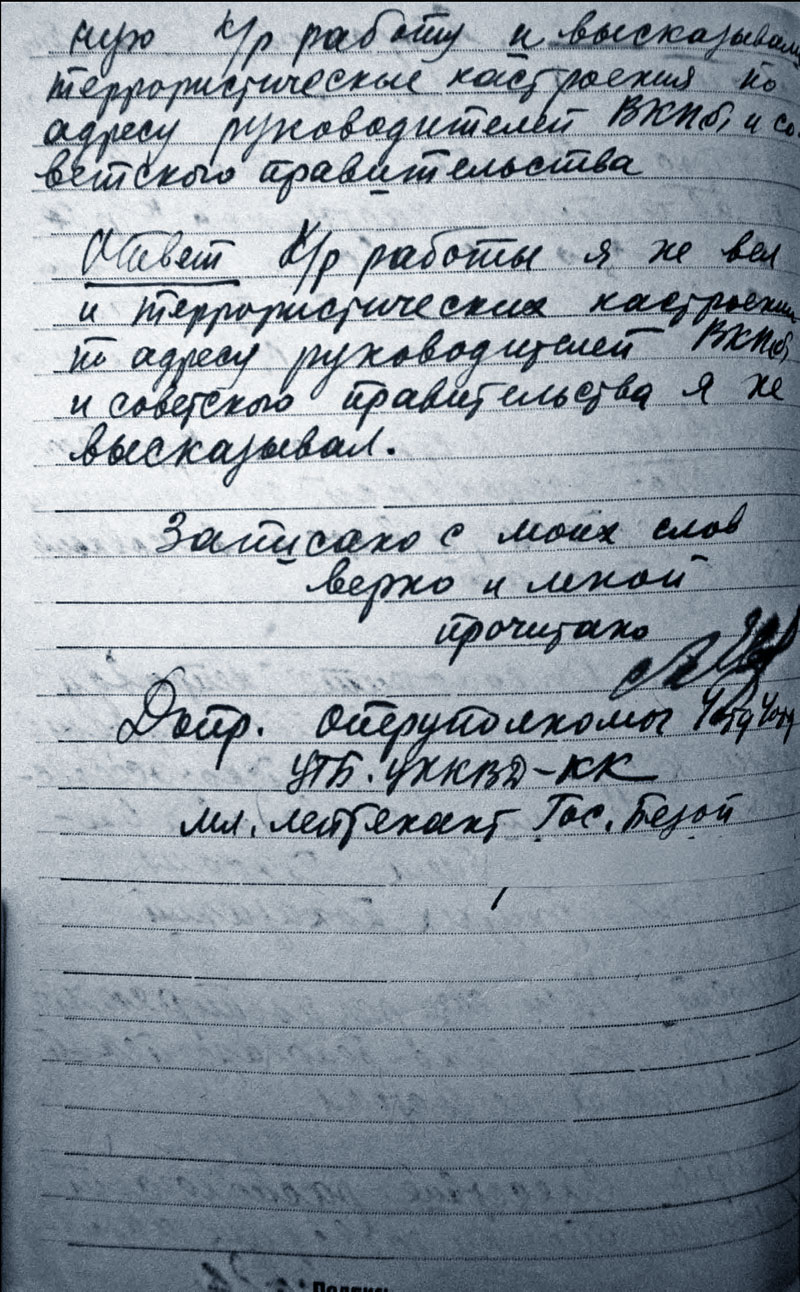 ную к/р работу и высказывали
террористические настроения по
адресу руководителей ВКПб, и со-
ветского правительства
Ответ К/р работы я не вел
и террористических настроений
по адресу руководителей ВКПб,
и советского правительства я не
высказывал.
Записано с моих слов
верно и мной
прочитано
Допр. Оперуполномоч
УГБ. УНКВД-КК
мл. лейтенант Гос. Безоп
Подпись